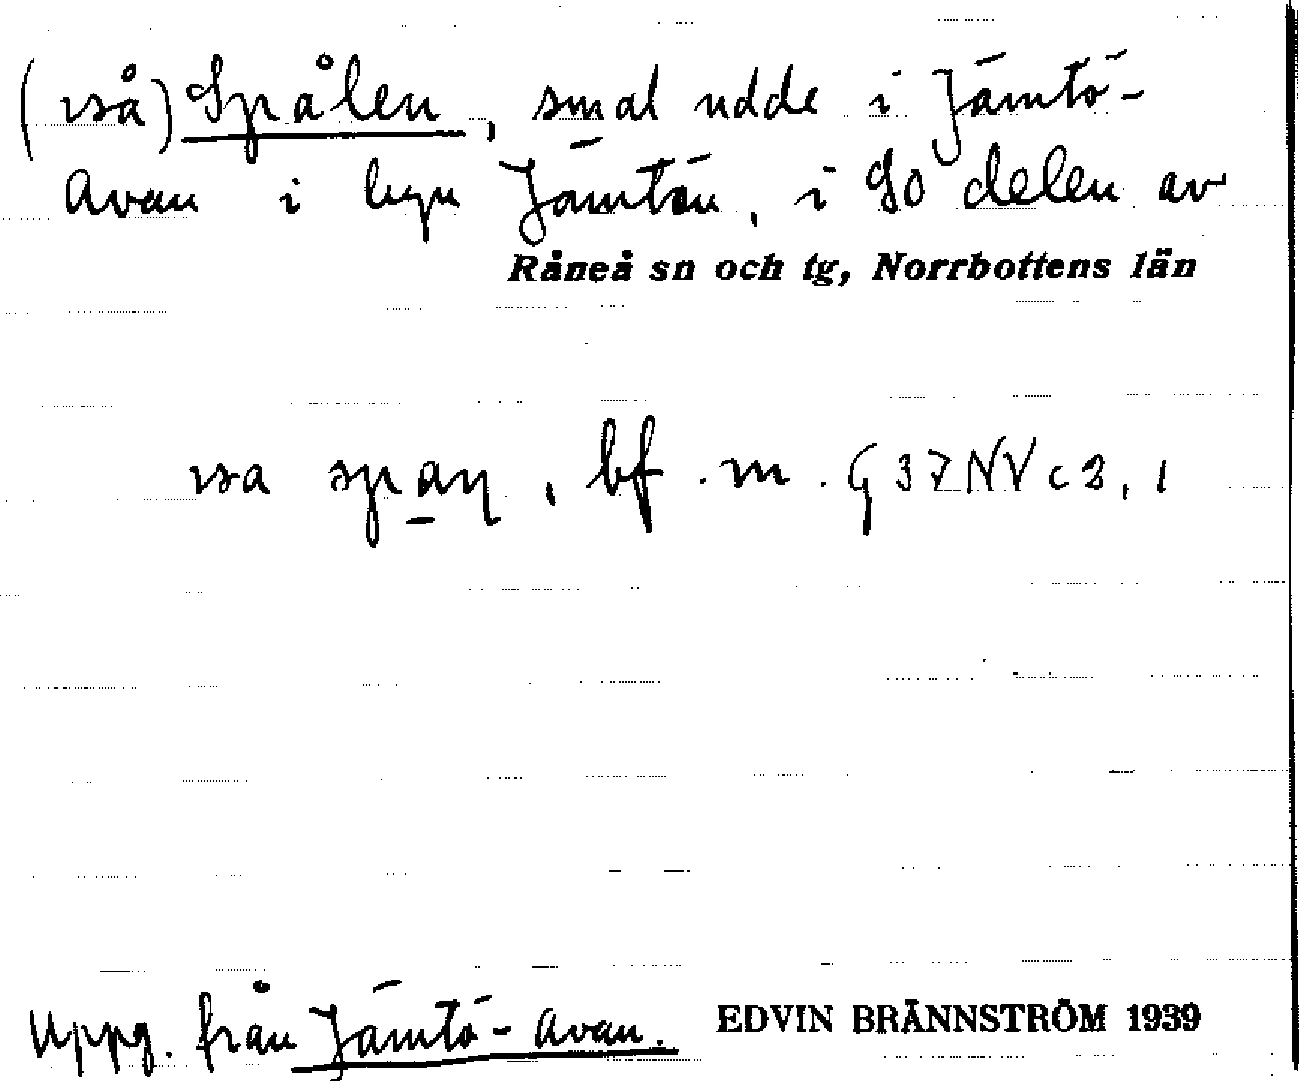 (vså) Spålen, smal udde i Jämtö-
Avan i byn Jämtön, i SO delen av
Råneå sn och tg, Norrbottens län
vsa spaɳ, bf. m. G 37 NV c 2, 1
Uppg. från Jämtö-Avan. EDVIN BRÄNNSTRÖM 1939